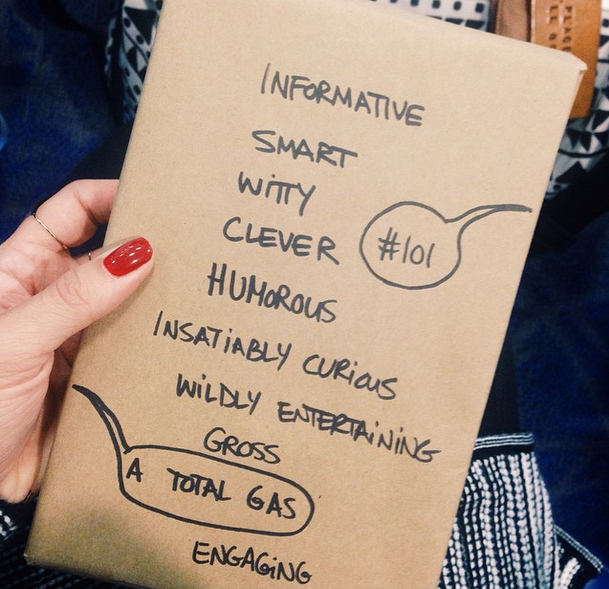 INFORMATIVE
SMART
WITTY
CLEVER
#101
HUMOROUS
INSATIABLY CURIOUS
WILDLY ENTERTAINING
GROSS
A TOTAL GAS
ENGAGING